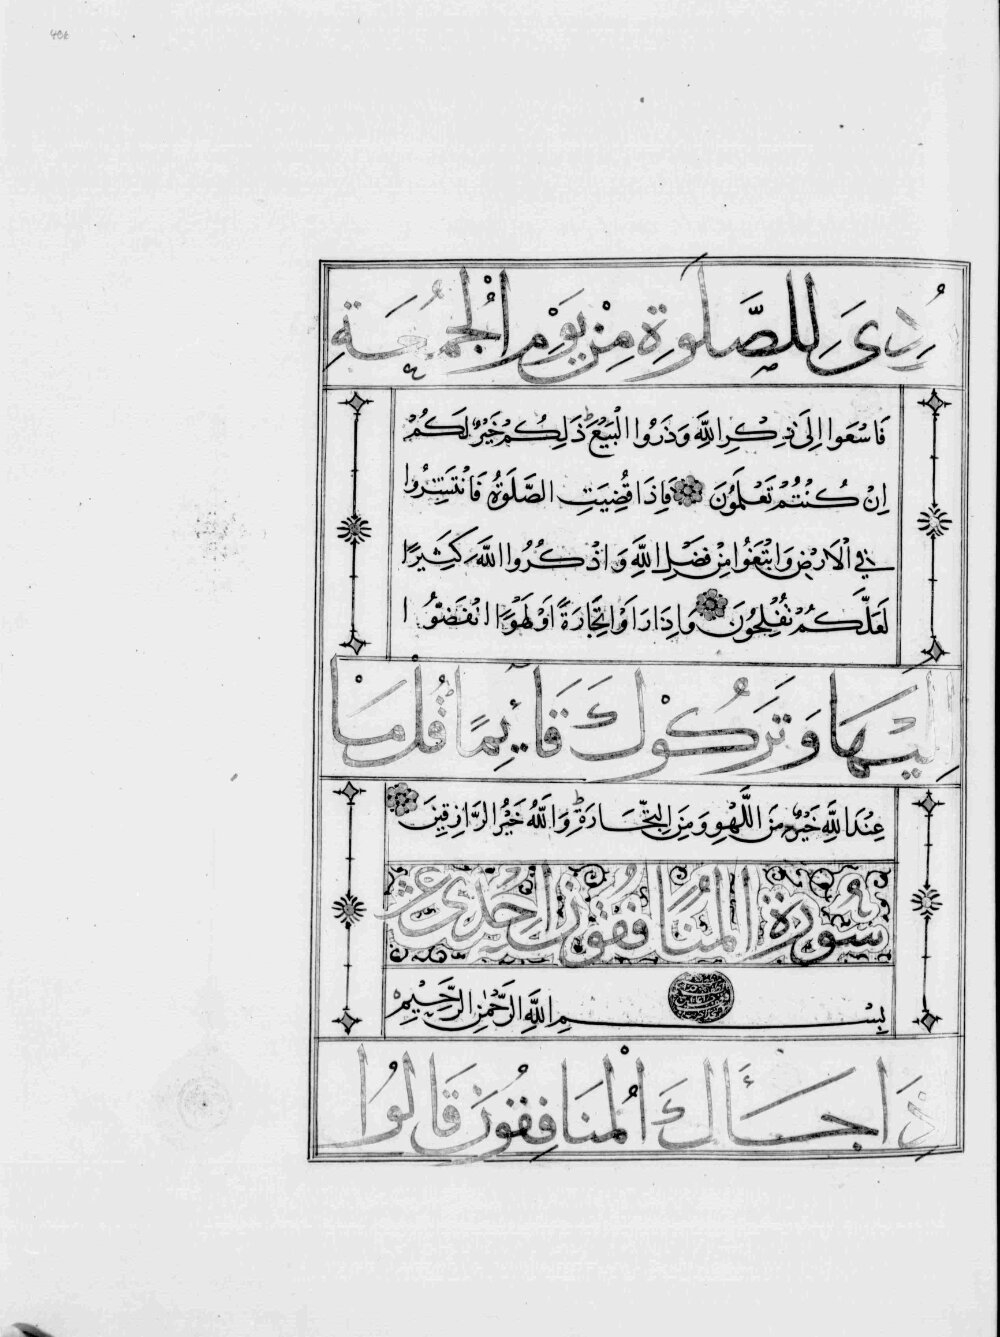 ُدِىَ لِلصَّلٰوةِ مِنْ يَوْمِ الْجُمُعَةِ
فَاسْعَوا اِلَىٰ ذِكْرِ اللّٰهِ وَذَرُوا الْبَيْعَ ذَلِكُمْ خَيْرٌ لَكُمْ
اِنْ كُنْتُمْ تَعْلَمُونَ فَاِذَا قُضِيَتِ الصَّلَوةُ فَانْتَشِرُوا
فِي الْاَرْضِ وَابْتَغُوا مِنْ فَضْلِ اللّٰهِ وَاذْكُرُوا اللّٰهَ كَثِيرًا
لَعَلَّكُمْ تُفْلِحُونَ وَاِذَا رَاَوْا تِجَارَةً اَوْ لَهْوًا انْفَضُّوا ا
لَيْهَا وَتَرَكُوكَ قَآئِمًا قُلْ مَا
عِنْدَ اللّٰهِ خَيْرٌ مِنَ اللَّهْوِ وَمِنَ التِّجَارَةِ وَاللّٰهُ خَيْرُ الرَّازِقِينَ
سُورَةُ الْمُنَافِقُونَ اِحْدَى عَشَرَ
بِسْمِ اللّٰهِ الرَّحْمٰنِ الرَّحِيمِ
ذَا جَآءَكَ الْمُنَافِقُونَ قَالُوا